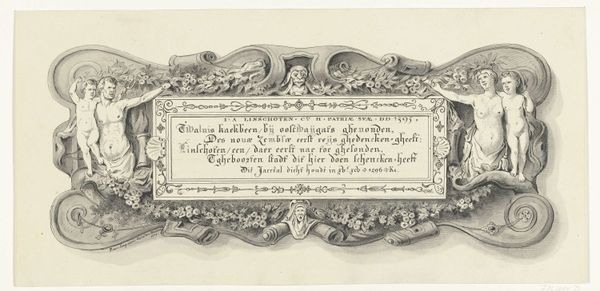 I·A LINSCHOTEN· CV H· PATRIÆ SVÆ· DD·1595·
Twalvis kaekbeen/bij oostwaijgats ghevonden,
Des nouæ Zemblæ eerst reijs ghedencken-gheeft:
Linschoten/een/daer eerst nae toe ghesonden,
Tgheboorten stadt dit hier doen schencken-heeft
Dit Jaertal dicht houdt in